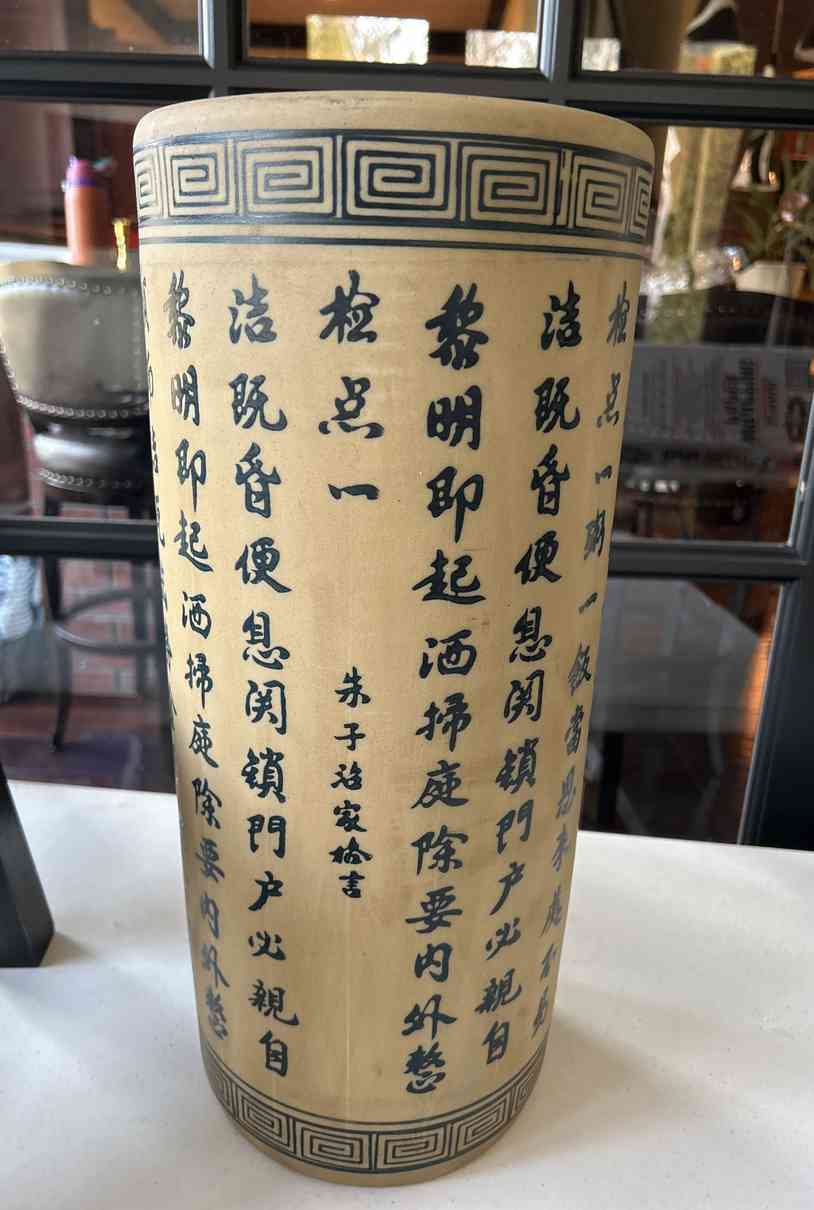 黎明即起洒掃庭除要内外整
洁既昏便息関锁門户必親自
检点一
朱子治家格言
黎明即起洒掃庭除要内外整
洁既昏便息関锁門户必親自
检点一粥一飯當思来處不易